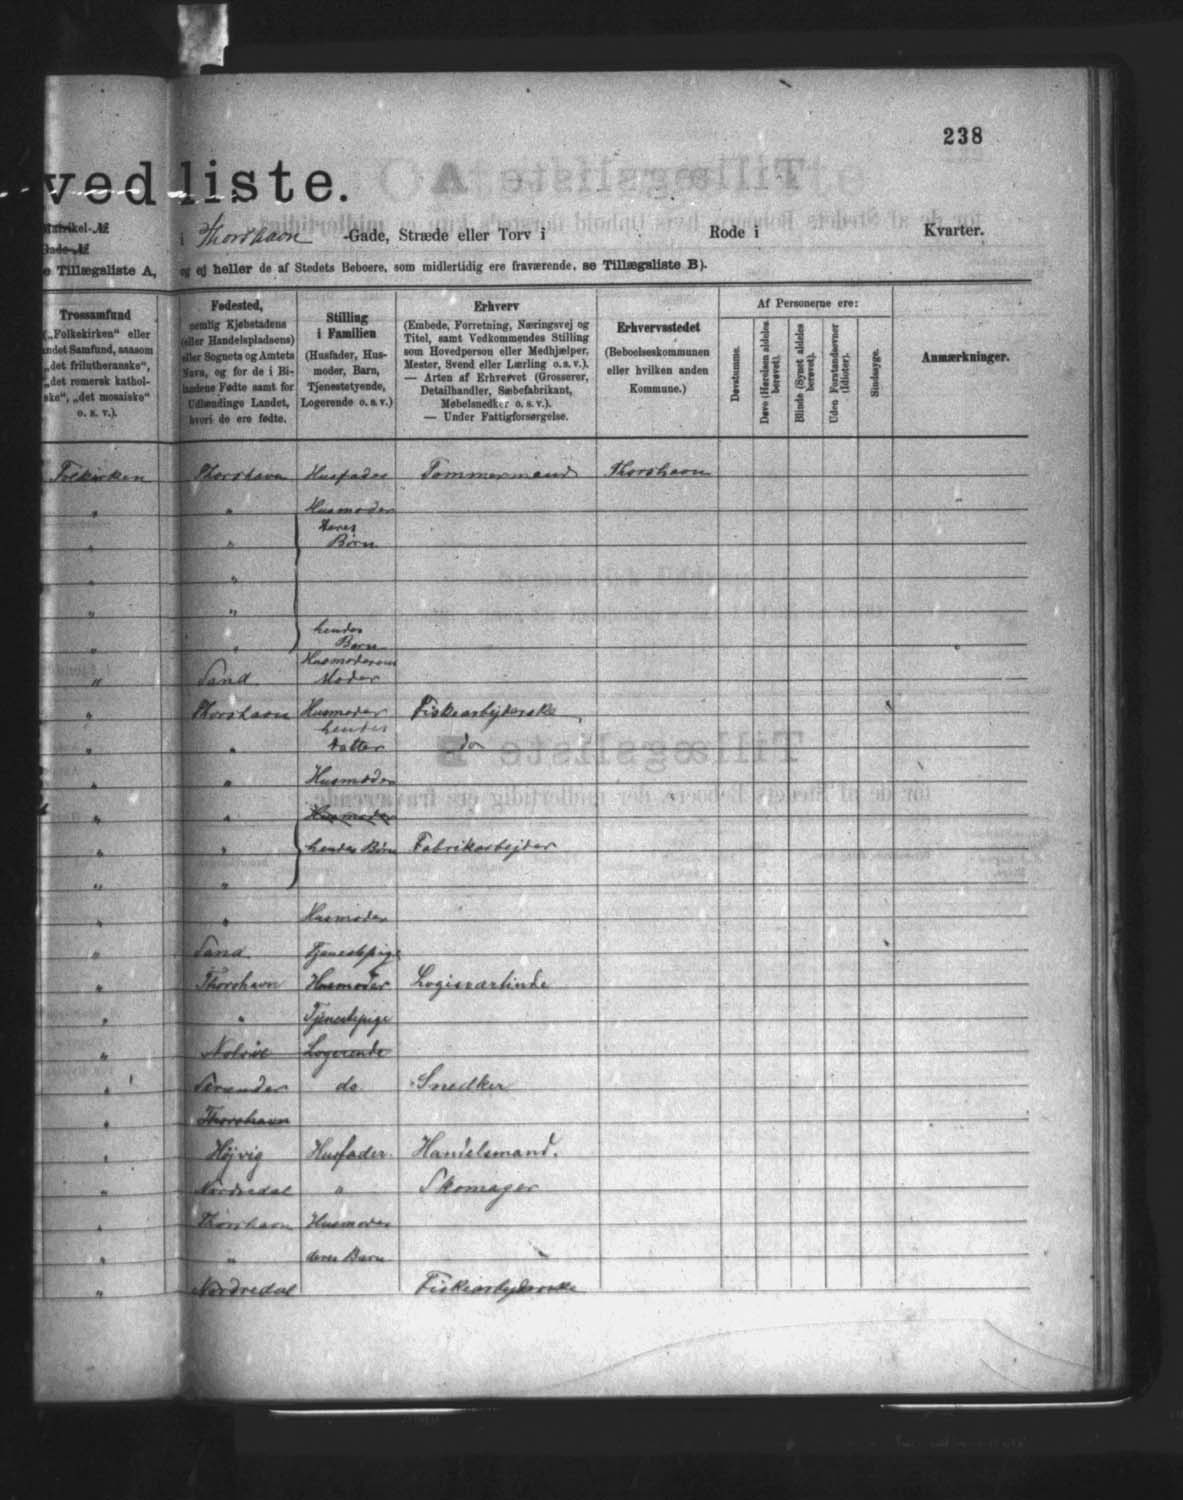 238
vedliste.
Matrikel-№
Gade-№
i Thorshavn -Gade, Stræde eller Torv i Rode i Kvarter.
e Tillægsliste A, og ej heller de af Stedets Beboere, som midlertidig ere fraværende, se Tillægsliste B).
Trossamfund
(„Folkekirken“ eller
andet Samfund, saasom
„det frilutheranske“,
„det romersk kathol-
ske“, „det mosaiske“
o. s. v.).
Fødested,
nemlig Kjøbstadens
(eller Handelspladsens)
eller Sognets og Amtets
Navn, og for de i Bi-
landene Fødte samt for
Udlændinge Landet,
hvori de ere fødte.
Stilling
i Familien
(Husfader, Hus-
moder, Barn,
Tjenestetyende,
Logerende o. s. v.)
Erhverv
(Embede, Forretning, Næringsvej og
Titel, samt Vedkommendes Stilling
som Hovedperson eller Medhjælper,
Mester, Svend eller Lærling o. s. v.).
— Arten af Erhvervet (Grosserer,
Detailhandler, Sæbefabrikant,
Møbelsnedker o. s. v.).
— Under Fattigforsørgelse.
Erhvervsstedet
(Beboelseskommunen
eller hvilken anden
Kommune.)
Af Personerne ere:
Døvstumme.
Døve (Hørelsen aldeles berøvet).
Blinde (Synet aldeles berøvet).
Uden Forstandsevner (Idioter).
Sindssyge.
Anmærkninger.
Folkirken Thorshavn Husfader Tømmermand Thorshavn
" " Husmoder
" " Deres
Børn
" "
" "
" " hendes
Barn
" Sand Husmoderens
Moder
" Thorshavn Husmoder Fiskearbejderske
" " hendes
Datter do
" " Husmoder
" " Husmoder
" " hendes Børn Fabrikarbejder
" "
" " Husmoder
" Sand Tjenestepige
" Thorshavn Husmoder Logisværtinde
" " Tjenestepige
" Nolsöe Logerende
" Strander do Snedker
" Thorshavn
" Højvig Husfader Handelsmand.
" Nordredal " Skomager
" Thorshavn Husmoder
" " deres Barn
" Nordredal Fiskearbejderske